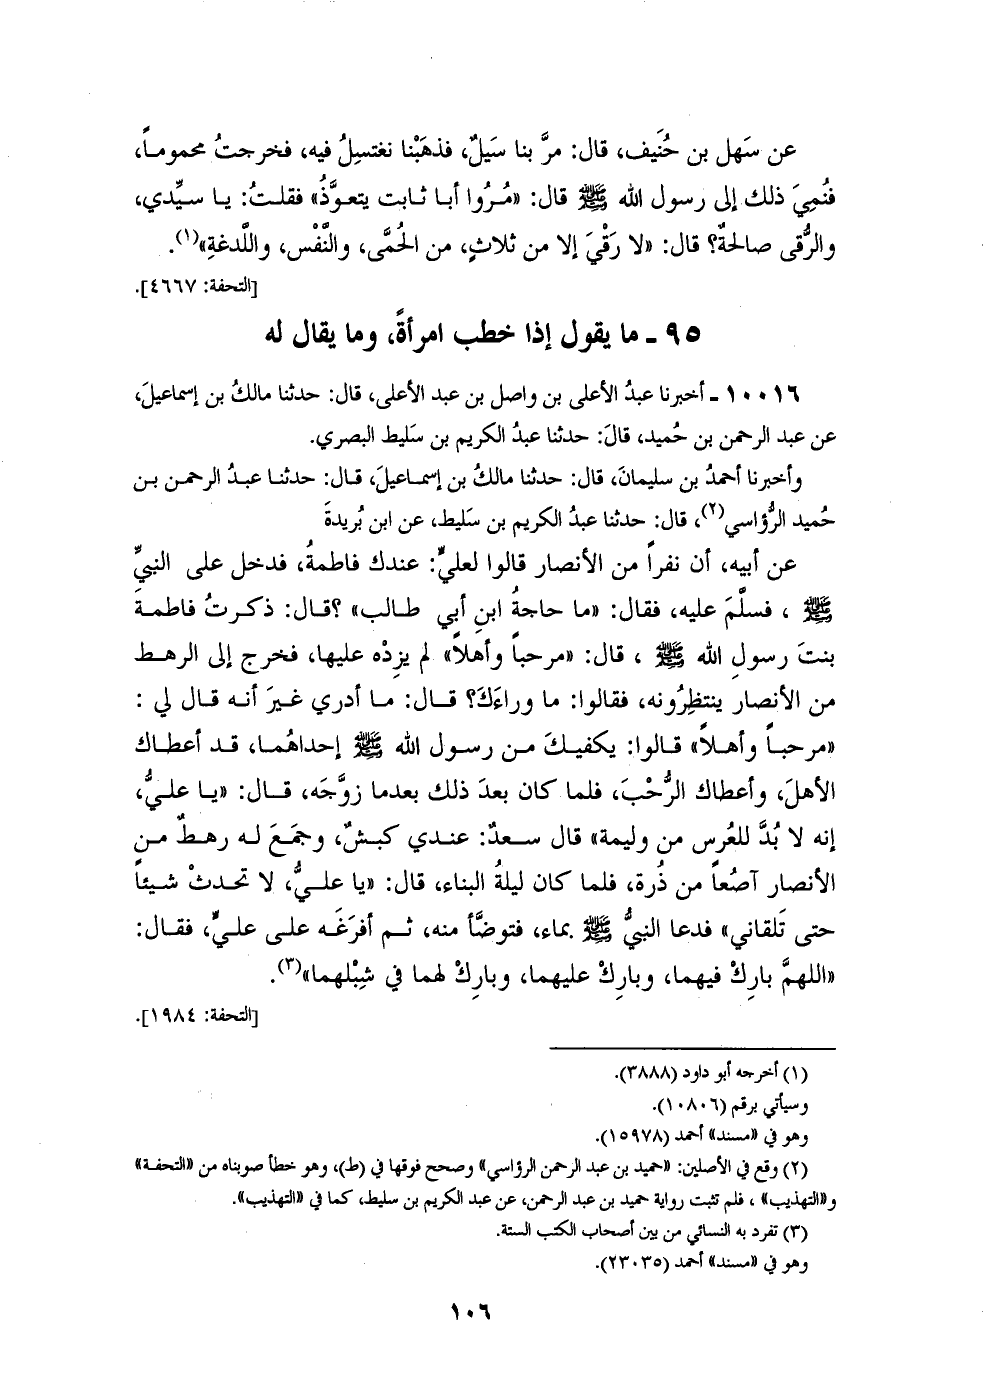 عن سَهل بن حُنَيف، قال: مرَّ بنا سَيَلٌ، فذهَبْنا نغتسِلُ فيه، فخرجتُ محموماً،
فنُمِيَ ذلك إلى رسول الله ﷺ قال: «مُرُوا أبا ثابت يتعوَّذُ» فقلتُ: يا سيِّدي،
والرُّقى صالحةٌ؟ قال: «لا رَقْيَ إلا من ثلاثٍ، من الحُمَّى، والنَّفْس، واللَّدغةِ»(١).
[التحفة: ٤٦٦٧].
٩٥ ـ ما يقول إذا خطب امرأةً، وما يقال له
١٠٠١٦ ـ أخبرنا عبدُ الأعلى بن واصل بن عبد الأعلى، قال: حدثنا مالكُ بن إسماعيلَ،
عن عبد الرحمن بن حُميد، قالَ: حدثنا عبدُ الكريم بن سَليط البصري.
وأخبرنا أحمدُ بن سليمانَ، قال: حدثنا مالكُ بن إسماعيلَ، قال: حدثنا عبدُ الرحمن بن
حُميد الرُّؤاسي(٢)، قال: حدثنا عبدُ الكريم بن سَليط، عن ابن بُريدةَ
عن أبيه، أن نفراً من الأنصار قالوا لعليٍّ: عندك فاطمةُ، فدخل على النبيِّ
ﷺ ، فسلَّمَ عليه، فقال: «ما حاجةُ ابنِ أبي طالب» ؟قال: ذكرتُ فاطمةَ
بنتَ رسولِ الله ﷺ ، قال: «مرحباً وأهلاً» لم يزِدْه عليها، فخرج إلى الرهط
من الأنصار ينتظِرُونه، فقالوا: ما وراءَكَ؟ قال: ما أدري غيرَ أنه قال لي :
«مرحباً وأهلاً» قالوا: يكفيكَ من رسول الله ﷺ إحداهُما، قد أعطاك
الأهلَ، وأعطاك الرُّحْبَ، فلما كان بعدَ ذلك بعدما زوَّجَه، قال: «يا عليُّ،
إنه لا بُدَّ للعُرس من وليمة» قال سعدٌ: عندي كبشٌ، وجمَعَ له رهطٌ من
الأنصار آصُعاً من ذُرة، فلما كان ليلةُ البناء، قال: «يا عليُّ، لا تحدثْ شيئاً
حتى تَلقاني» فدعا النبيُّ ﷺ بماء، فتوضَّأ منه، ثم أفرَغَه على عليٍّ، فقال:
«اللهمَّ بارِكْ فيهما، وبارِكْ عليهما، وبارِكْ لهما في شِبْلهما»(٣).
[التحفة: ١٩٨٤].
(١) أخرجه أبو داود (٣٨٨٨).
وسيأتي برقم (١٠٨٠٦).
وهو في «مسند» أحمد (١٥٩٧٨).
(٢) وقع في الأصلين: «حميد بن عبد الرحمن الرؤاسي» وصحح فوقها في (ط)، وهو خطأ صوبناه من «التحفة»
و«التهذيب» ، فلم تثبت رواية حميد بن عبد الرحمن، عن عبد الكريم بن سليط، كما في «التهذيب».
(٣) تفرد به النسائي من بين أصحاب الكتب الستة.
وهو في «مسند» أحمد (٢٣٠٣٥).
١٠٦